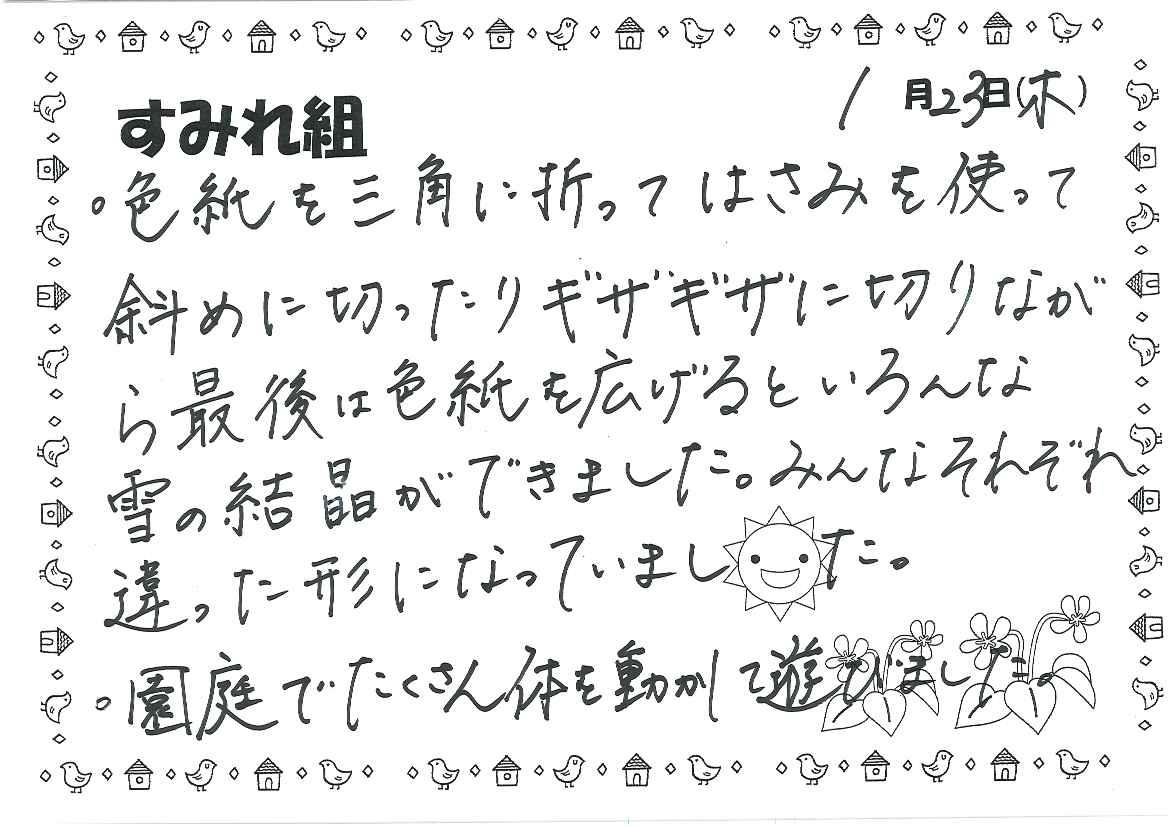 1月23日(木)
すみれ組
。色紙を三角に折ってはさみを使って
斜めに切ったりギザギザに切りなが
ら最後は色紙を広げるといろんな
雪の結晶ができました。みんなそれぞれ
違った形になっていました。
。園庭でたくさん体を動かして遊びました。